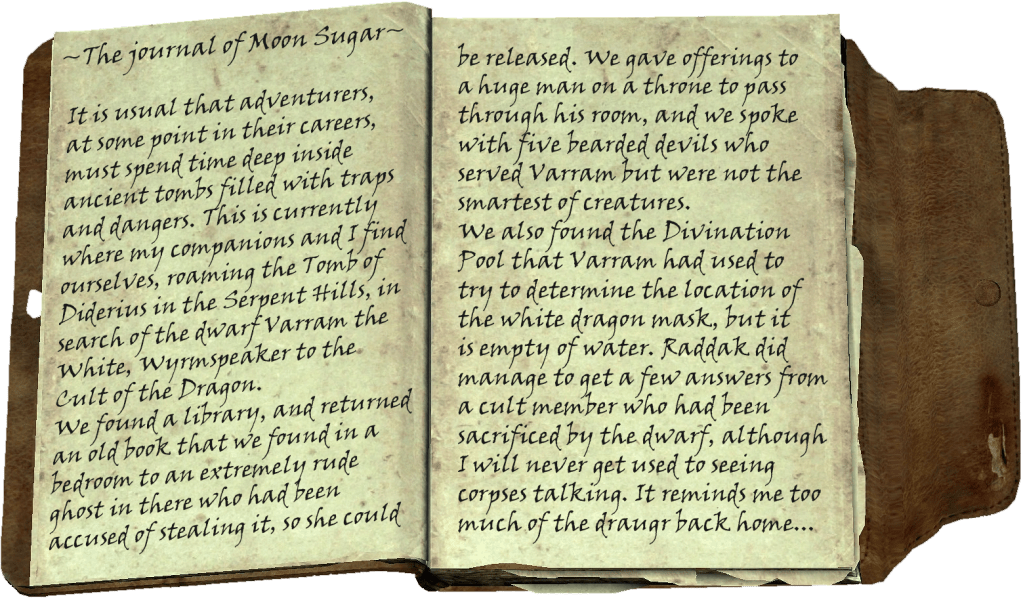 ~The journal of Moon Sugar~
It is usual that adventurers,
at some point in their careers,
must spend time deep inside
ancient tombs filled with traps
and dangers. This is currently
where my companions and I find
ourselves, roaming the Tomb of
Diderius in the Serpent Hills, in
search of the dwarf Varram the
White, Wyrmspeaker to the
Cult of the Dragon.
We found a library, and returned
an old book that we found in a
bedroom to an extremely rude
ghost in there who had been
accused of stealing it, so she could
be released. We gave offerings to
a huge man on a throne to pass
through his room, and we spoke
with five bearded devils who
served Varram but were not the
smartest of creatures.
We also found the Divination
Pool that Varram had used to
try to determine the location of
the white dragon mask, but it
is empty of water. Raddak did
manage to get a few answers from
a cult member who had been
sacrificed by the dwarf, although
I will never get used to seeing
corpses talking. It reminds me too
much of the draugr back home...